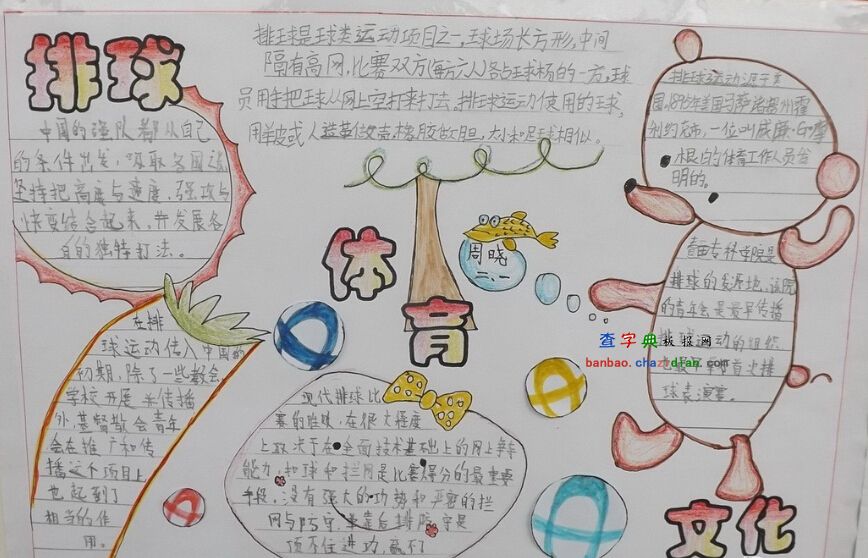 排球
排球是球类运动项目之一,球场长方形,中间
隔有高网,比赛双方(每方六人)各占球场的一方,球
员用手把球从网上空打来打去。排球运动使用的球,
用羊皮或人造革做壳,橡胶做胆,大小和足球相似。
中国的 队都从自己
的条件出发,吸取各国
坚持把高度与速度、强攻与
快变结合起来,并发展各
自的独特打法。
体育
周晓
二、一
排球运动源于美
国。1895年美国马萨诸塞州霍
利约克市,一位叫威廉·G·摩
根的体育工作人员发
明的。
春田专科学院是
排球的发源地,该院
的青年会是最早传播
排球运动的组织
首次排
球表演赛。
查字典板报网
banbao.chazidian.com
在排
球运动传入中国的
初期,除了一些教会
学校开展并传播
外,基督教会青年
会在推广和传
播这个项目上
也起到了
相当的作
用。
现代排球比
赛的胜败,在很大程度
上取决于在全面技术基础上的网上争夺
能力,扣球和拦网是比赛得分的最重要
手段,没有强大的攻势和严密的拦
网与防守,单靠后排防守是
顶不住进攻,赢不
文化